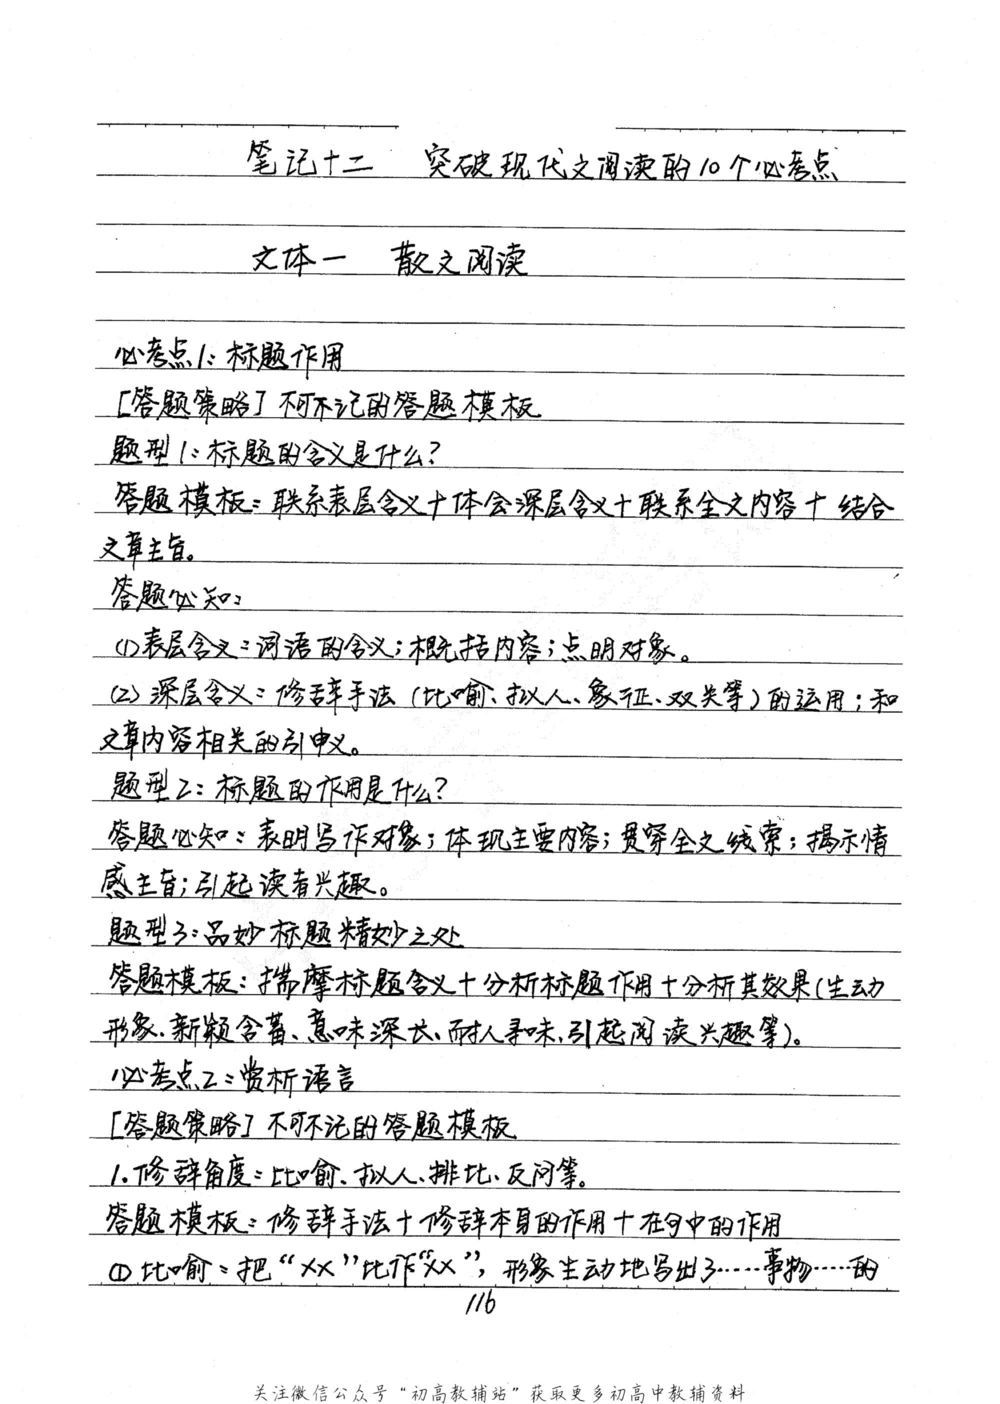 笔记十二 突破现代文阅读的10个必考点
文体一 散文阅读
必考点1:标题作用
[答题策略]不可不记的答题模板
题型1:标题的含义是什么?
答题模板:联系表层含义+体会深层含义+联系全文内容+结合
文章主旨。
答题必知:
(1)表层含义:词语的含义;概括内容;点明对象。
(2)深层含义:修辞手法(比喻、拟人、象征、双关等)的运用;和
文章内容相关的引申义。
题型2:标题的作用是什么?
答题必知:表明写作对象;体现主要内容;贯穿全文线索;揭示情
感主旨;引起读者兴趣。
题型3:品妙标题精妙之处
答题模板:揣摩标题含义+分析标题作用+分析其效果(生动
形象、新颖含蓄、意味深长、耐人寻味、引起阅读兴趣等)。
必考点2:赏析语言
[答题策略]不可不记的答题模板
1.修辞角度:比喻、拟人、排比、反问等。
答题模板:修辞手法+修辞本身的作用+在句中的作用
(1)比喻:把“××”比作“××”,形象生动地写出了……事物……的
116
关注微信公众号“初高教辅站”获取更多初高中教辅资料